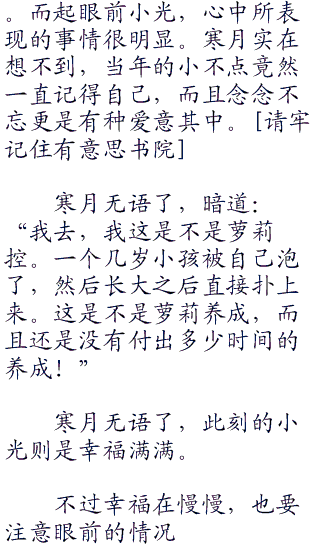 。而起眼前小光，心中所表
现的事情很明显。寒月实在
想不到，当年的小不点竟然
一直记得自己，而且念念不
忘更是有种爱意其中。[请牢
记住有意思书院]
寒月无语了，暗道：
“我去，我这是不是萝莉
控。一个几岁小孩被自己泡
了，然后长大之后直接扑上
来。这是不是萝莉养成，而
且还是没有付出多少时间的
养成！”
寒月无语了，此刻的小
光则是幸福满满。
不过幸福在慢慢，也要
注意眼前的情况